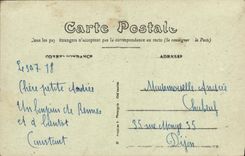 Carte Postale
Tous les pays étrangers n'acceptent pas la correspondance au recto (Se renseigner à la Poste)
CORRESPONDANCE
ADRESSE
Le 30 7. 18
Chère petite Andrée
Un bonjour de Rennes
et à bientôt
Constant
Mademoiselle Andrée
35 rue Monge 35
Dijon